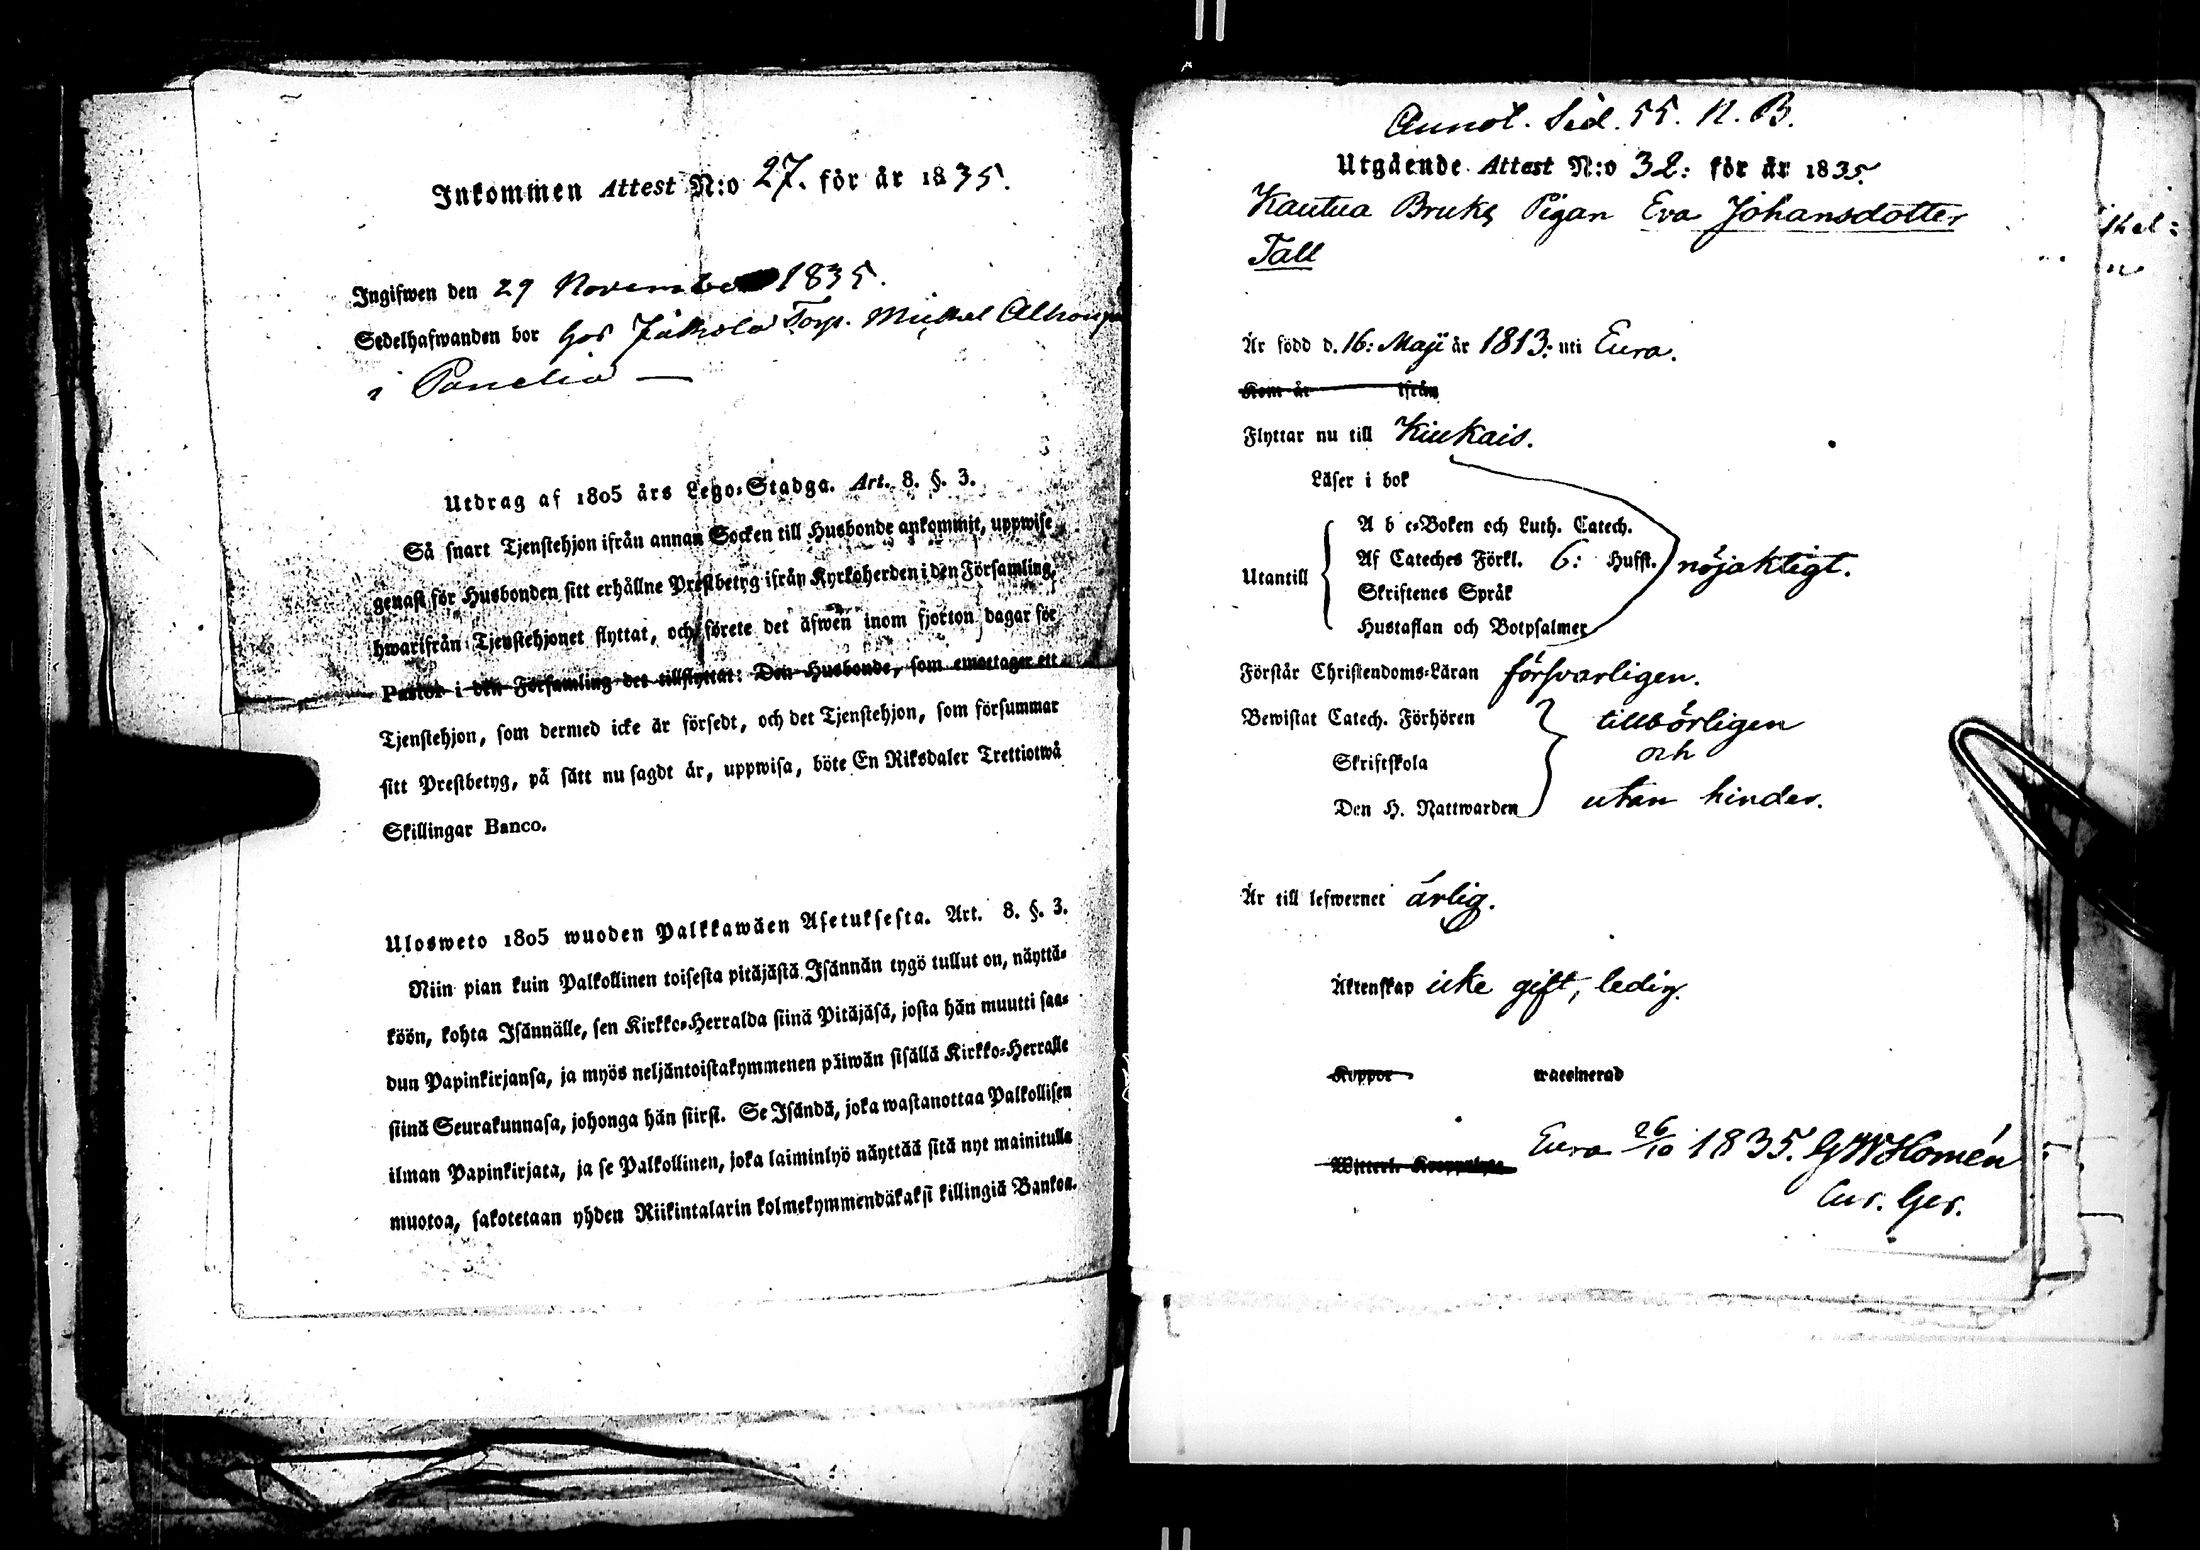 Inkommen Attest N:o 27. för år 1835.
Ingifwen den 29 November 1835.
Sedelhafwanden bor hos Jåkola Torp. Michel
i Panelia —
Utdrag af 1805 års Lego-Stadga. Art. 8. §. 3.
Så snart Tjenstehjon ifrån annan Socken till Husbonde ankommit, uppwise
genast för Husbonden sitt erhållne Prestbetyg ifrån Kyrkoherden i den Församling,
hwarifrån Tjenstehjonet flyttat, och förete det äfwen inom fjorton dagar för
Pastor i den Församling det tillflyttat: Den Husbonde, som emottager ett
Tjenstehjon, som dermed icke är försedt, och det Tjenstehjon, som försummar
sitt Prestbetyg, på sätt nu sagdt är, uppwisa, böte En Riksdaler Trettiotwå
Skillingar Banco.
Ulosweto 1805 wuoden Palkkawäen Asetuksesta. Art. 8. §. 3.
Niin pian kuin Palkollinen toisesta pitäjästä Isännän tygö tullut on, näyttä-
köön, kohta Isännälle, sen Kirkko-Herralda siinä Pitäjäsä, josta hän muutti saa-
dun Papinkirjansa, ja myös neljäntoistakymmenen päiwän sisällä Kirkko-Herralle
siinä Seurakunnasa, johonga hän siirst. Se Isändä, joka wastanottaa Palkollisen
ilman Papinkirjata, ja se Palkollinen, joka laiminlyö näyttää sitä nyt mainitulla
muotoa, sakotetaan yhden Riikintalarin kolmekymmendäkaksi killingiä Bankoa.
Annot. Sid. 55. N. B.
Utgående Attest N:o 32: för år 1835.
Kautua Bruks Pigan Eva Johansdotter
Tall
Är född d. 16: Maji år 1813: uti Eura.
Kom år ifrån
Flyttar nu till Kiukais.
Läser i bok
A b c-Boken och Luth. Catech.
Utantill Af Cateches Förkl. 6: Hufst. nöjaktigt.
Skriftenes Språk
Hustaflan och Botpsalmer
Förstår Christendoms-Läran försvarligen.
Bewistat Catech. Förhören tillbörligen
Skriftskola och
Den H. Nattwarden utan hinder.
Är till lefwernet ärlig.
Äktenskap icke gift, ledig.
Koppor waccinerad
Eura 26/10 1835. G W Homén
Cur. Ger.